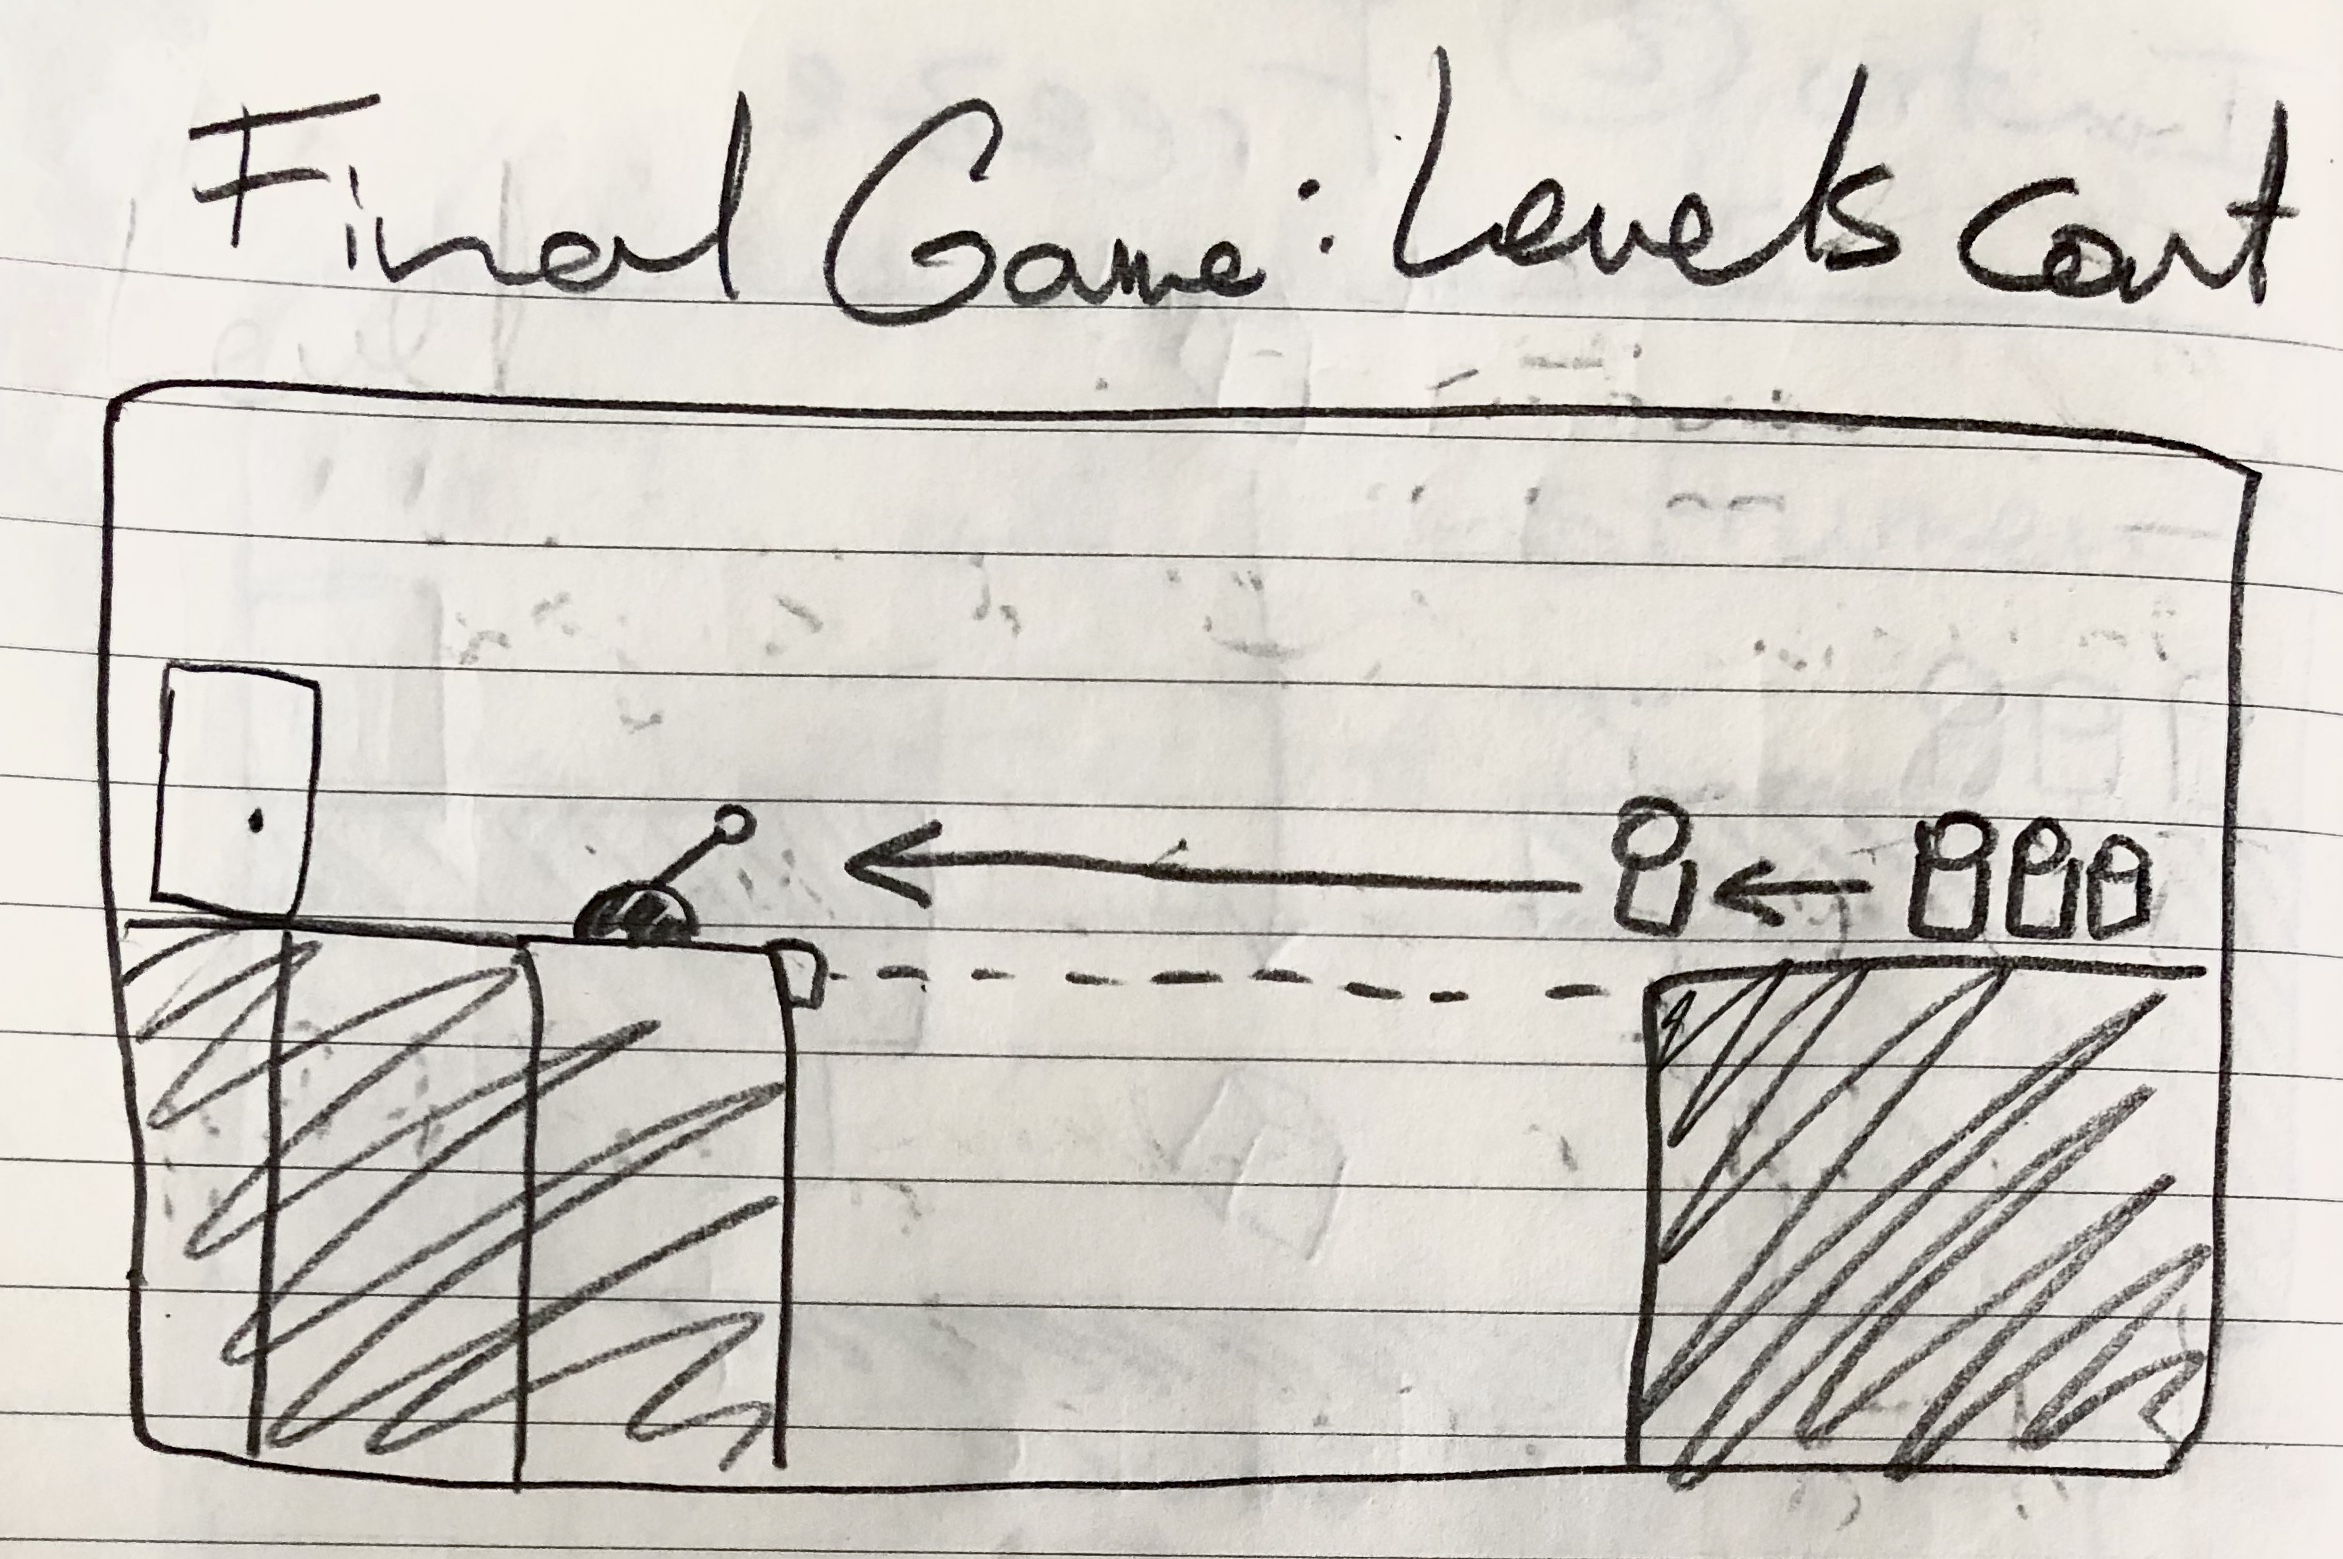 Final Game: Levels Cont